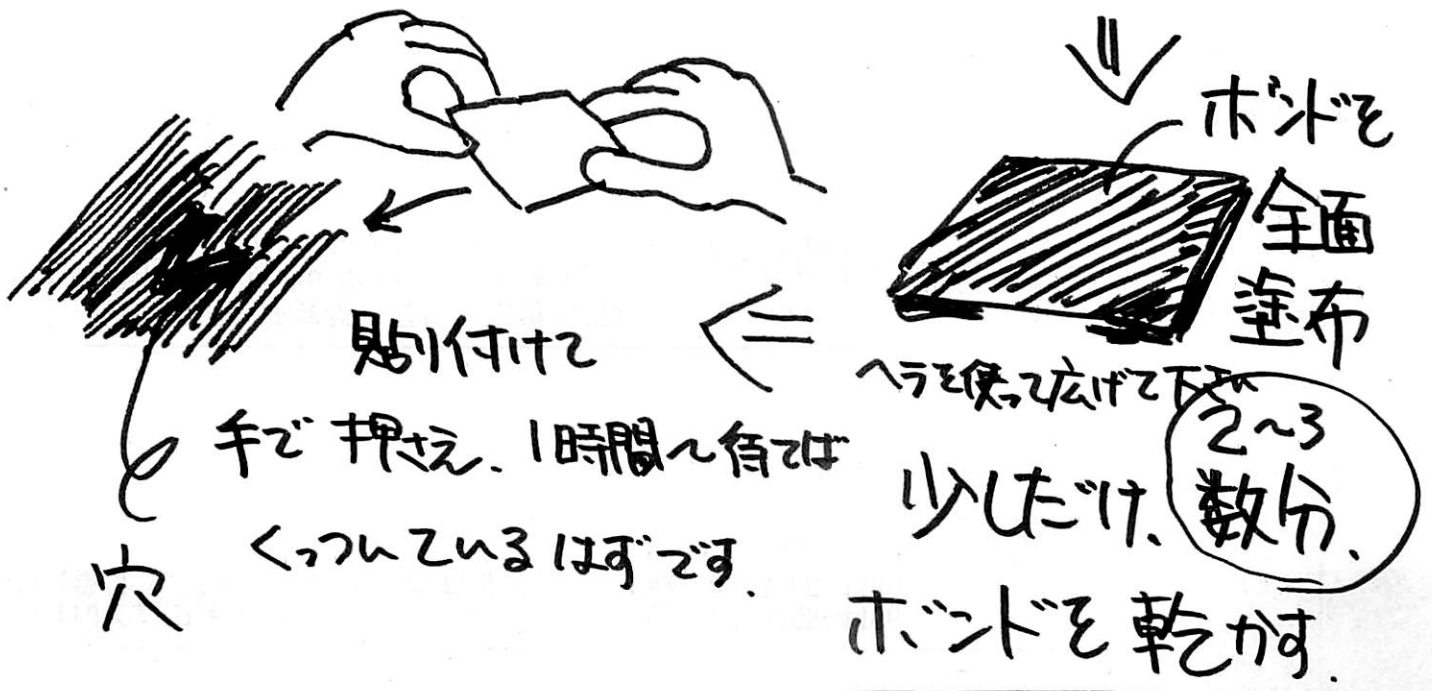 ボンドを
全面
塗布
ヘラを使って広げて下さい
2～3
少しだけ、数分、
ボンドを乾かす.
貼り付けて
手で押さえ、1時間～待てば
くっついているはずです.
穴